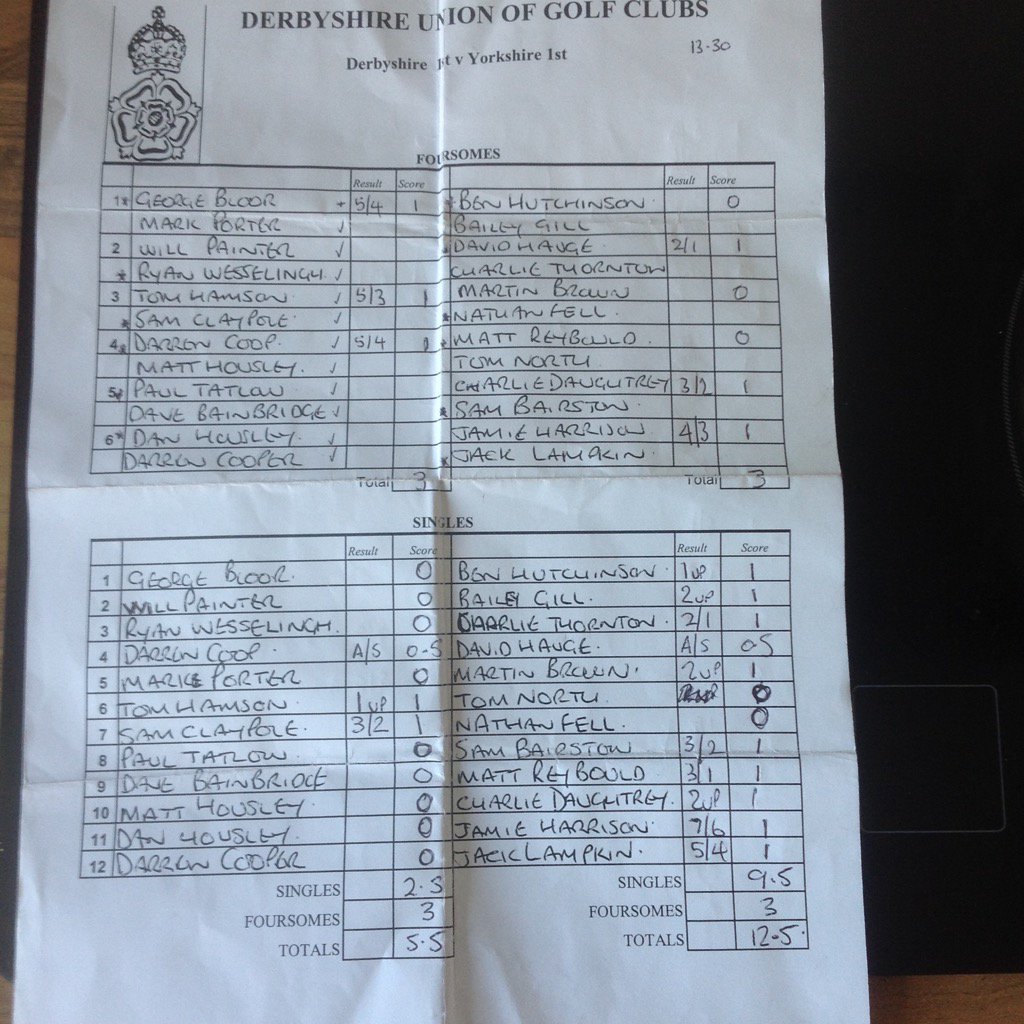 DERBYSHIRE UNION OF GOLF CLUBS
Derbyshire 1st v Yorkshire 1st 13-30
FOURSOMES
Result Score Result Score
1* GEORGE BLOOR * 5/4 1 * BEN HUTCHINSON 0
MARK PORTER ✓ BAILEY GILL
2 WILL PAINTER ✓ DAVID HAUGE 2/1 1
* RYAN WESSELINGH ✓ CHARLIE THORNTON
3 TOM HAMSON ✓ 5/3 1 MARTIN BROWN 0
* SAM CLAYPOLE ✓ * NATHAN FELL
4* DARREN COOP ✓ 5/4 1 * MATT REYBOULD 0
MATT HOUSLEY ✓ TOM NORTH
5* PAUL TATLOW ✓ CHARLIE DAUGHTREY 3/2 1
DAVE BAINBRIDGE ✓ * SAM BAIRSTON
6* DAN HOUSLEY ✓ JAMIE HARRISON 4/3 1
DARREN COOPER ✓ * JACK LAMPKIN
Total 3 Total 3
SINGLES
Result Score Result Score
1 GEORGE BLOOR 0 BEN HUTCHINSON 1UP 1
2 WILL PAINTER 0 BAILEY GILL 2UP 1
3 RYAN WESSELINGH 0 CHARLIE THORNTON 2/1 1
4 DARREN COOP A/S 0-5 DAVID HAUGE A/S 0-5
5 MARK PORTER 0 MARTIN BROWN 2UP 1
6 TOM HAMSON 1UP 1 TOM NORTH 0
7 SAM CLAYPOLE 3/2 1 NATHAN FELL 0
8 PAUL TATLOW 0 SAM BAIRSTON 3/2 1
9 DAVE BAINBRIDGE 0 MATT REYBOULD 3/1 1
10 MATT HOUSLEY 0 CHARLIE DAUGHTREY 2UP 1
11 DAN HOUSLEY 0 JAMIE HARRISON 7/6 1
12 DARREN COOPER 0 JACK LAMPKIN 5/4 1
SINGLES 2.5 SINGLES 9.5
FOURSOMES 3 FOURSOMES 3
TOTALS 5.5 TOTALS 12-5